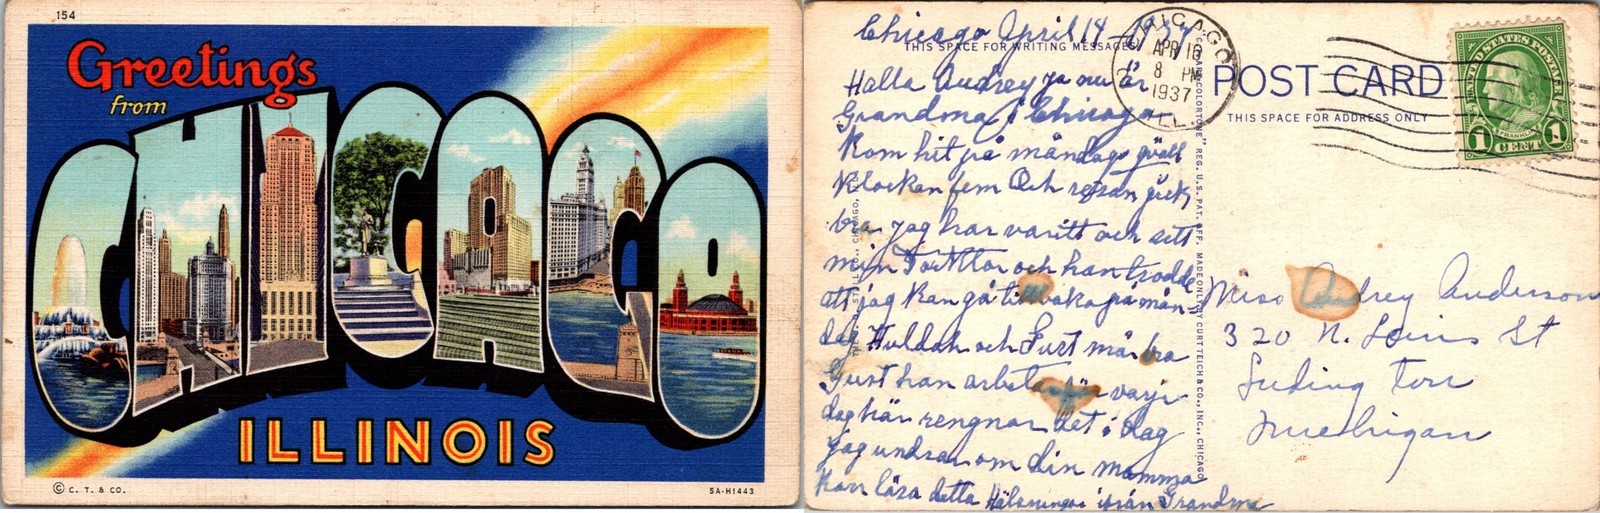 154
Greetings
from
CHICAGO
ILLINOIS
© C. T. & CO.
5A-H1443
Chicago April 14 1937
THIS SPACE FOR WRITING MESSAGES
Halla Audrey ja nu är
Grandma i Chicago
Kom hit på måndags qväll
klockan fem Och resan gick
bra jag har varitt och sett
min Docktor och han trodde
att jag kan gå tillbaka på mån-
dag Huldah och Gust mår bra
Gust han arbetar varje
dag här rengnar det i dag
jag undrar om din mamma
kan läsa detta Hälsningar ifrån Grandma
CHICAGO
APR 16
8 PM
1937
ILL.
POST CARD
THIS SPACE FOR ADDRESS ONLY
REG. U.S. PAT. OFF. MADE ONLY BY CURT TEICH & CO., INC., CHICAGO
UNITED STATES POSTAGE
FRANKLIN
1 CENT 1
Miss Audrey Anderson
320 N. Lewis St
Luding Ton
Michigan